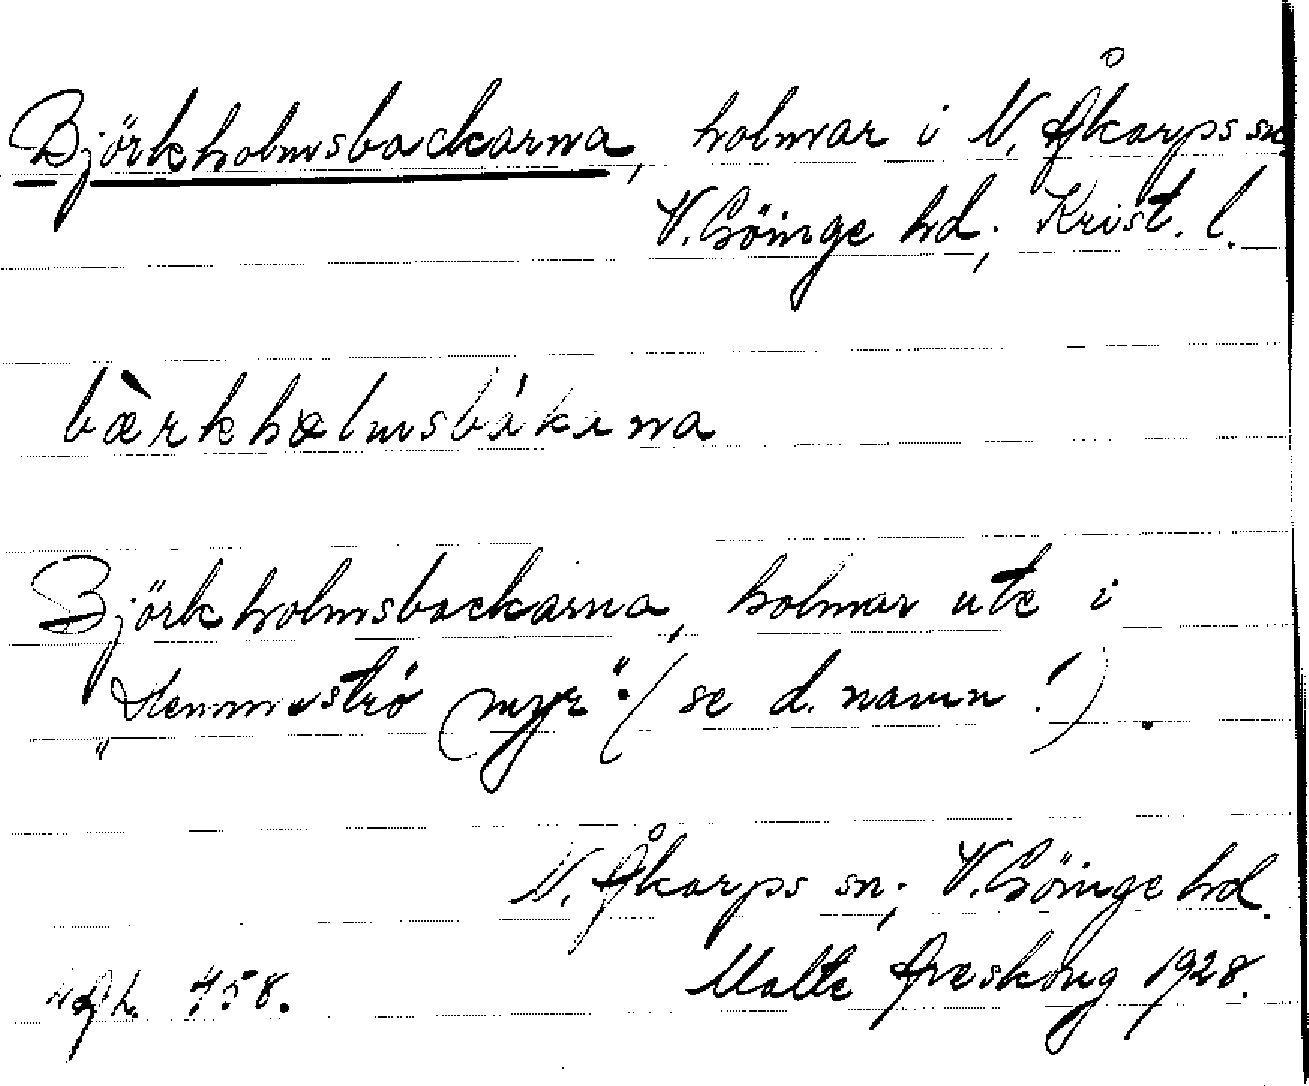 Björkholmsbackarna, holmar i N. Åkarps sn;
V. Göinge hd; Krist. l.
bærkhωlmsbákana
Björkholmsbackarna, holmar ute i
myr". (se d. namn!).
N. Åkarps sn; V. Göinge hd.
Malte Areskoug 1928.
acch. 458.